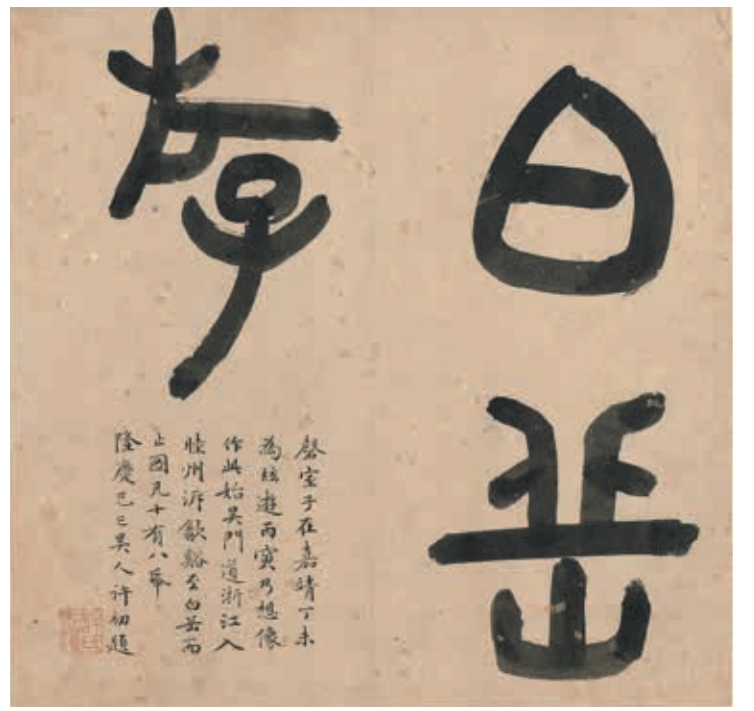 白岳
斿
磬室子在嘉靖丁未
為茲遊丙寅乃想像
作此始吳門道浙江入
睦州泝歙谿至白岳而
止圖凡十有八帋
隆慶己巳吳人許初題